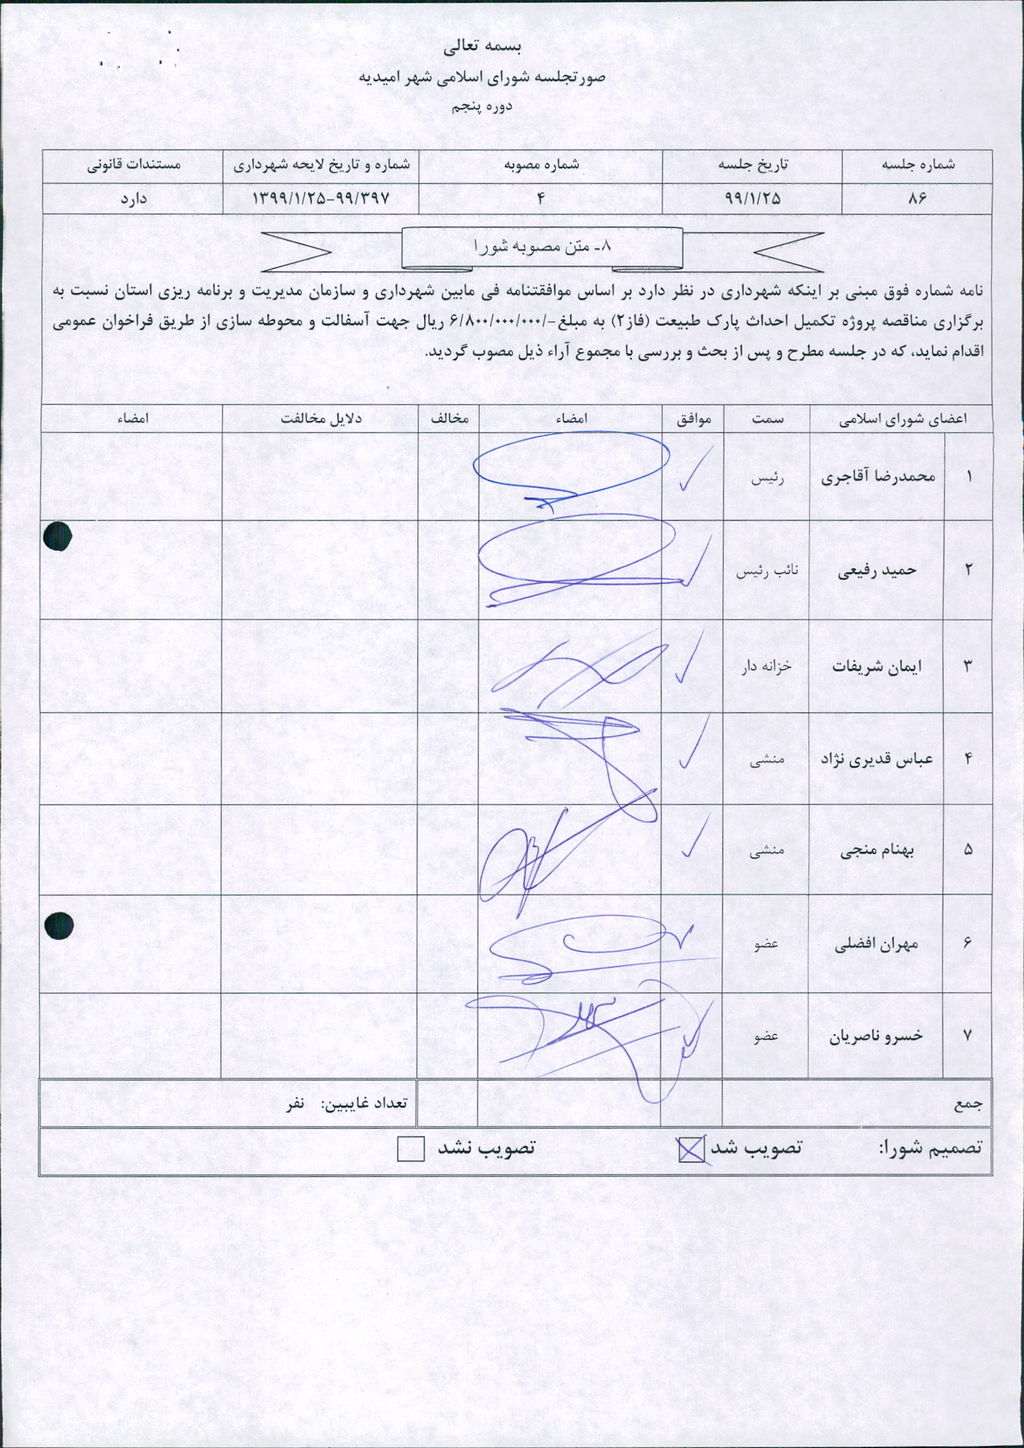 بسمه تعالی
صورتجلسه شورای اسلامی شهر امیدیه
دوره پنجم
شماره جلسه تاریخ جلسه شماره مصوبه شماره و تاریخ لایحه شهرداری مستندات قانونی
۸۶ ۹۹/۱/۲۵ ۴ ۱۳۹۹/۱/۲۵-۹۹/۳۹۷ دارد
۸- متن مصوبه شورا
نامه شماره فوق مبنی بر اینکه شهرداری در نظر دارد بر اساس موافقتنامه فی مابین شهرداری و سازمان مدیریت و برنامه ریزی استان نسبت به
برگزاری مناقصه پروژه تکمیل احداث پارک طبیعت (فاز۲) به مبلغ -/۶/۸۰۰/۰۰۰/۰۰۰ ریال جهت آسفالت و محوطه سازی از طریق فراخوان عمومی
اقدام نماید، که در جلسه مطرح و پس از بحث و بررسی با مجموع آراء ذیل مصوب گردید.
اعضای شورای اسلامی سمت موافق امضاء مخالف دلایل مخالفت امضاء
۱ محمدرضا آقاجری رئیس
۲ حمید رفیعی نائب رئیس
۳ ایمان شریفات خزانه دار
۴ عباس قدیری نژاد منشی
۵ بهنام منجی منشی
۶ مهران افضلی عضو
۷ خسرو ناصریان عضو
جمع تعداد غایبین: نفر
تصمیم شورا: تصویب شد تصویب نشد